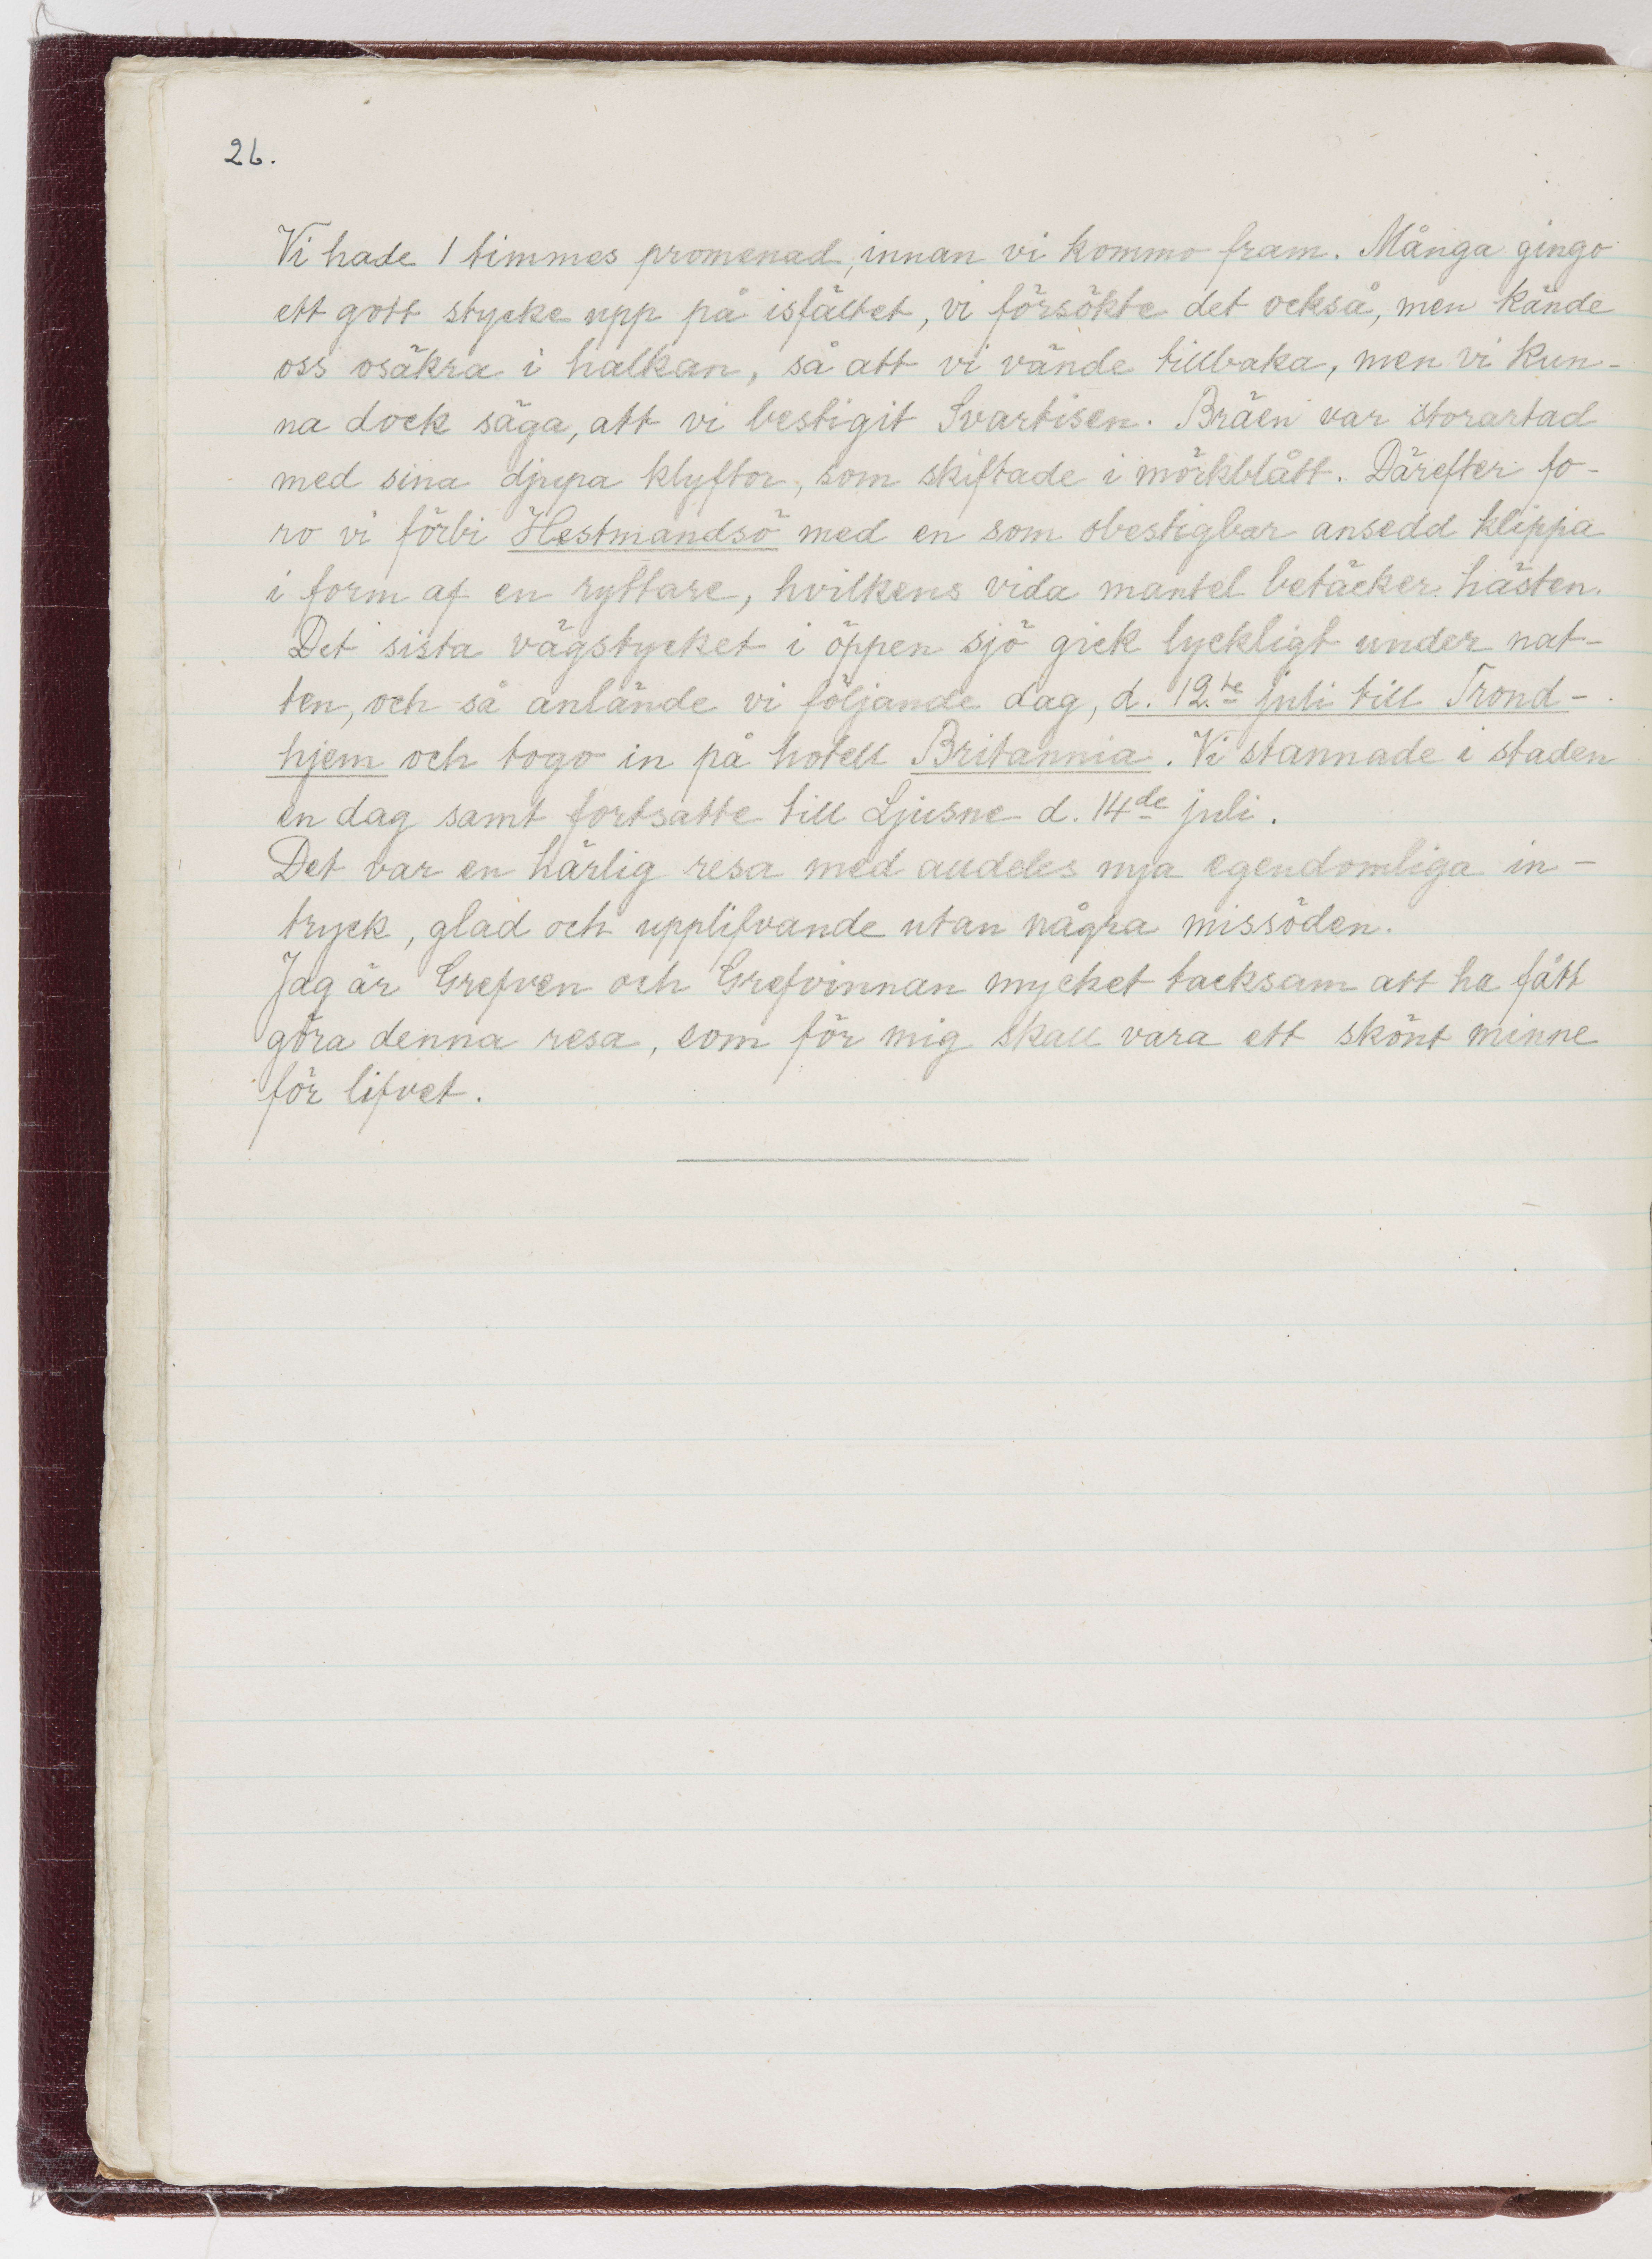 26.
Vi hade 1 timmes promenad, innan vi kommo fram. Många gingo
ett godt stycke upp på isfältet, vi försökte det också, men kände
oss osäkra i halkan, så att vi vände tillbaka, men vi kun-
na dock säga, att vi bestigit Svartisen. Bräen var storartad
med sina djupa klyftor, som skiftade i mörkblått. Därefter fo-
ro vi förbi Hestmandsö med en som obestigbar ansedd klippa
i form af en ryttare, hvilkens vida mantel betäcker hästen.
Det sista vägstycket i öppen sjö gick lyckligt under nat-
ten, och så anlände vi följande dag, d. 12.te juli till Trond-
hjem och togo in på hotell Britannia. Vi stannade i staden
en dag samt fortsatte till Ljusne d. 14de juli.
Det var en härlig resa med alldeles nya egendomliga in-
tryck, glad och upplifvande utan några missöden.
Jag är Grefven och Grefvinnan mycket tacksam att ha fått
göra denna resa, som för mig skall vara ett skönt minne
för lifvet.